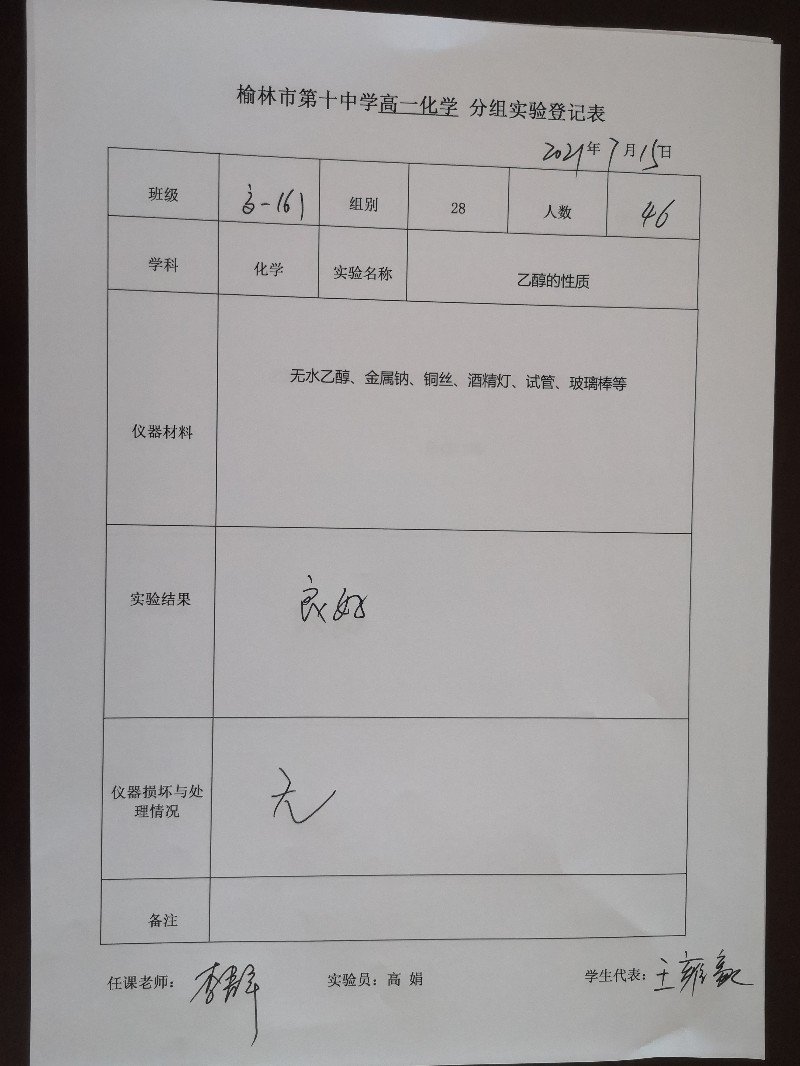 榆林市第十中学高一化学 分组实验登记表
2021年7月15日
班级 高一161 组别 28 人数 46
学科 化学 实验名称 乙醇的性质
仪器材料 无水乙醇、金属钠、铜丝、酒精灯、试管、玻璃棒等
实验结果 良好
仪器损坏与处
理情况 无
备注
任课老师： 实验员：高 娟 学生代表：